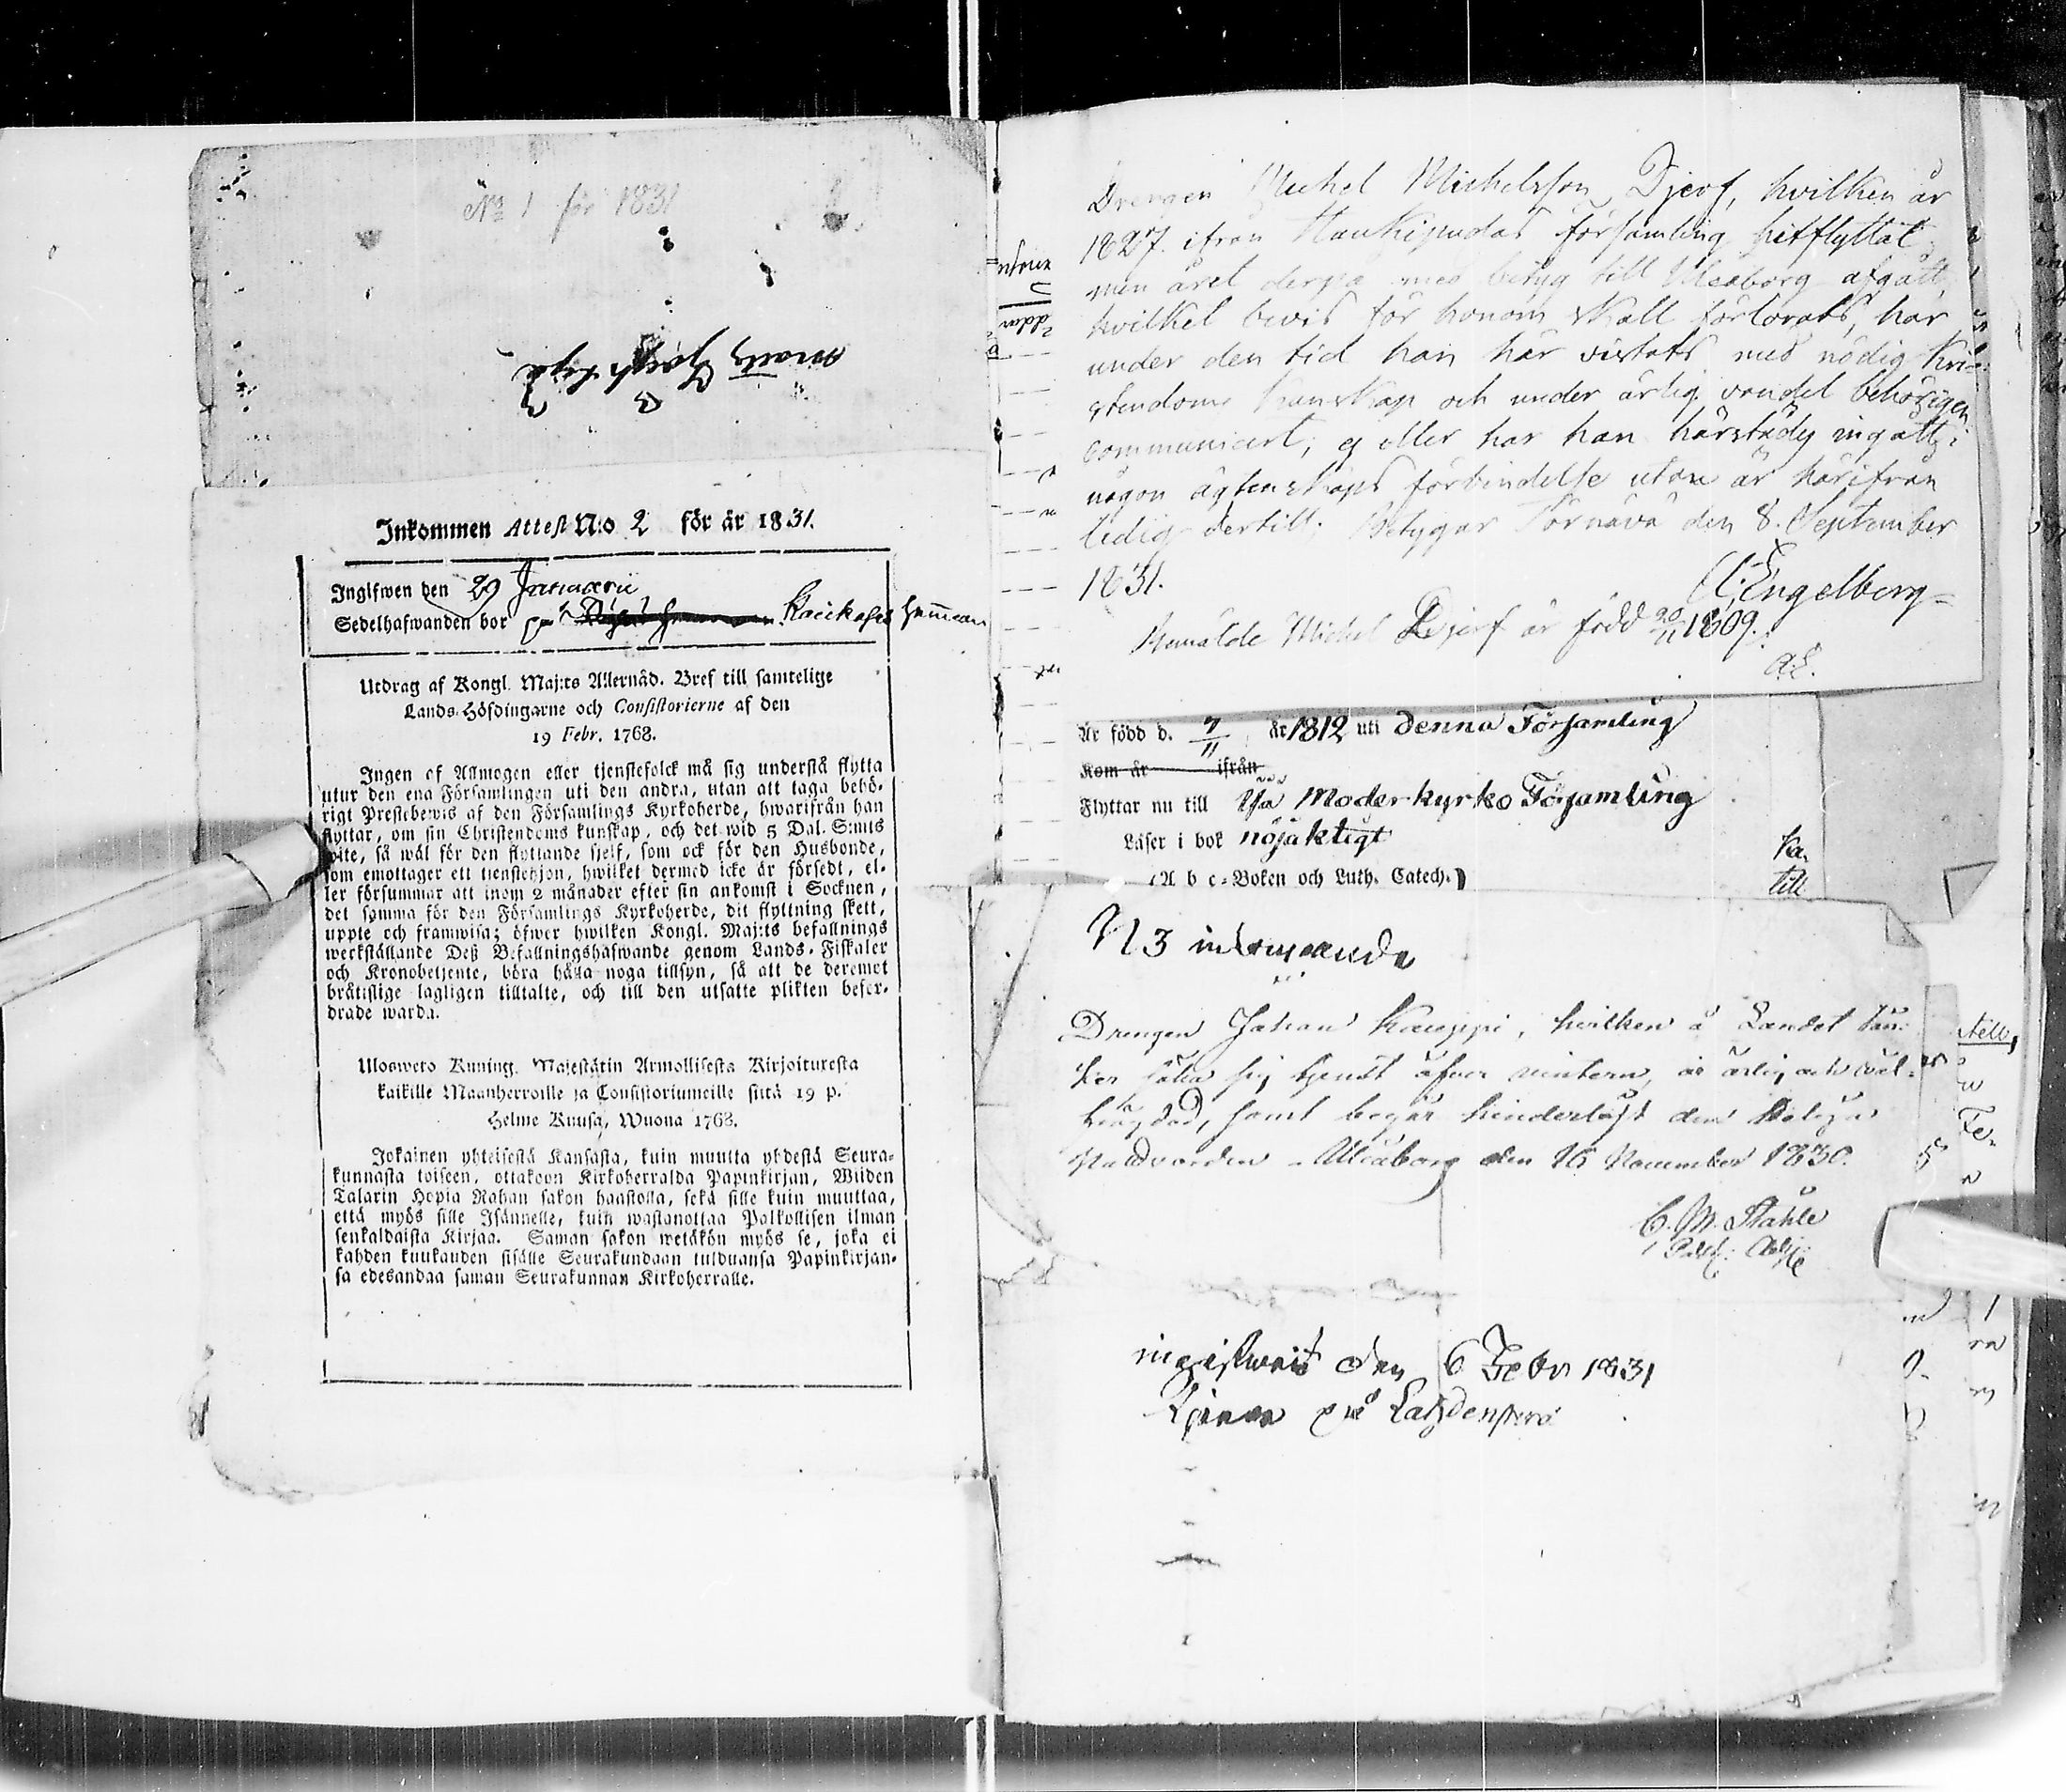 No 1 för 1831
Inkommen Attest N:o 2 för år 1831.
Ingifwen den 29 Januarii
Sedelhafwanden bor på Hemman
Utdrag af Kongl. Maj:ts Allernåd. Bref till samtelige
Lands-Höfdingarne och Consistorierne af den
19 Febr. 1768.
Ingen af Allmogen eller tjenstefolck må sig understå flytta
utur den ena Församlingen uti den andra, utan att taga behö-
rigt Prestebewis af den Församlings Kyrkoherde, hwarifrån han
flyttar, om sin Christendoms kunskap, och det wid 5 Dal. S:mts
wite, så wäl för den flyttande sjelf, som ock för den Husbonde,
som emottager ett tienstehjon, hwilket dermed icke är försedt, el-
ler försummar att inom 2 månader efter sin ankomst i Socknen,
det samma för den Församlings Kyrkoherde, dit flyttning skett,
uppte och framwisa; öfwer hwilken Kongl. Maj:ts befallnings
werkställande Deß Befallningshafwande genom Lands-Fiskaler
och Kronobetjente, böra hålla noga tillsyn, så att de deremot
bråtislige lagligen tilltalte, och till den utsatte plikten befor-
drade warda.
Ulosweto Kuning. Majestätin Armollisesta Kirjoituresta
kaikille Maanherroille ja Consistoriumeille siitä 19 p.
Helme Kuusa, Wuona 1768.
Jokainen yhteisestä Kansasta, kuin muutta yhdestä Seura-
kunnasta toiseen, ottakoon Kirkoherralda Papinkirjan, Wiiden
Talarin Hopia Rahan sakon haastolla, sekä sille kuin muuttaa,
että myös sille Isännelle, kuin wastanottaa Palkollisen ilman
senkaldaista Kirjaa. Saman sakon wetäkön myös se, joka ei
kahden kuukauden sisälle Seurakundaan tulduansa Papinkirjan-
sa edesandaa saman Seurakunnan Kirkoherralle.
Drengen Michel Michelsson Djerf, hvilken år
1827 ifrån Haukipudas församling hitflyttat
men året derpå med betyg till Uleåborg afgått,
hvilket bevis för honom skall förlorats, har
under den tid han här vistats med nödig Kri-
stendoms kunskap och under ärlig vandel behörigen
communicert, ej eller har han härstädes ingått i
någon ägtenskaps förbindelse utan är härifrån
ledig dertill; Betygar Törnävä den 8. September
1831.
A. Engelberg
Bemälde Michel Djerf är född 20/11 1809.
A.E.
Är född d. 7/11 år 1812 uti denna Församling
Kom år ifrån
Flyttar nu till Ijå Moderkyrko Församling
Läser i bok nöjaktigt
(A b c-Boken och Luth. Catech.)
N 3 inkommande
Drengen Johan Kauppi, hvilken å Landet tän-
ker söka sig tjenst öfver vintern, är ärlig och väl-
frägdad, samt begär hinderlöst den
Uleåborg den 16 November 1830.
C. M. Ståhle
ingifwit den 6 Febr 1831
Tjenar på